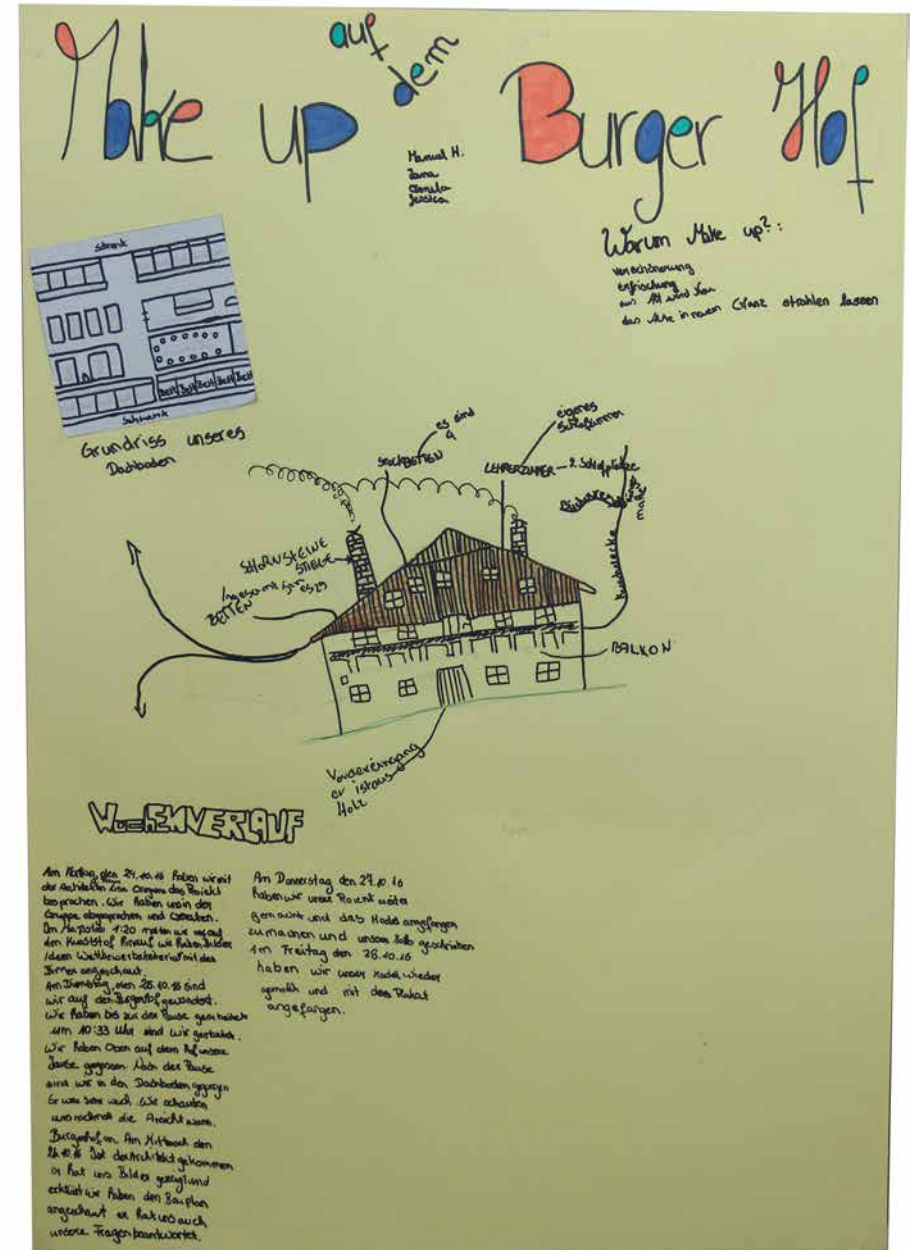 Make up auf dem Burger Hof
Manuel H.
Jana
Jessica
Warum Make up?:
verschönerung
erfrischung
aus Alt wird Neu
das Alte in neuem Glanz strahlen lassen
Schrank
Bett Bett Bett Bett Bett
Schrank
Grundriss unseres
Dachboden
es sind
4
STOCKBETTEN
eigenes
Schlafzimmer
LEHRERZIMMER – 2 Schlafplätze
SCHORNSTEINE
STIEGE
Ingesamt sin
es 29
BETTEN
Kuschelecke
BALKON
Vordereingang
er ist aus
Holz
WochENVERLAUF
Am Montag, den 24.10.16 haben wir mit
der Architektin das Projekt
besprochen. Wir haben uns in der
Gruppe abgesprochen und
Im Maßstab 1:20 wir
den
Ideen mit der
Firma angeschaut.
Am Dienstag, den 25.10.16 sind
wir auf den Burgerhof gewandert.
Wir haben bis zur der Pause gearbeitet
um 10:33 Uhr sind wir
Wir haben Oben auf dem Hof unsere
Jause gegessen. Nach der Pause
sind wir in den Dachboden gegangen
Er war sehr Wir schauten
uns nochmal die Ansicht vom
Burgerhof an. Am Mittwoch den
26.10.16 ist der Architekt gekommen
er hat uns Bilder gezeigt und
erklärt wir haben den Bauplan
angeschaut er hat uns auch
unsere Fragen beantwortet.
Am Donnerstag den 27.10.16
haben wir unser Projekt weiter
gemacht und das Model angefangen
zu machen und unsere geschrieben
Am Freitag den 28.10.16
haben wir unser Model wieder
gemacht und mit dem Plakat
angefangen.